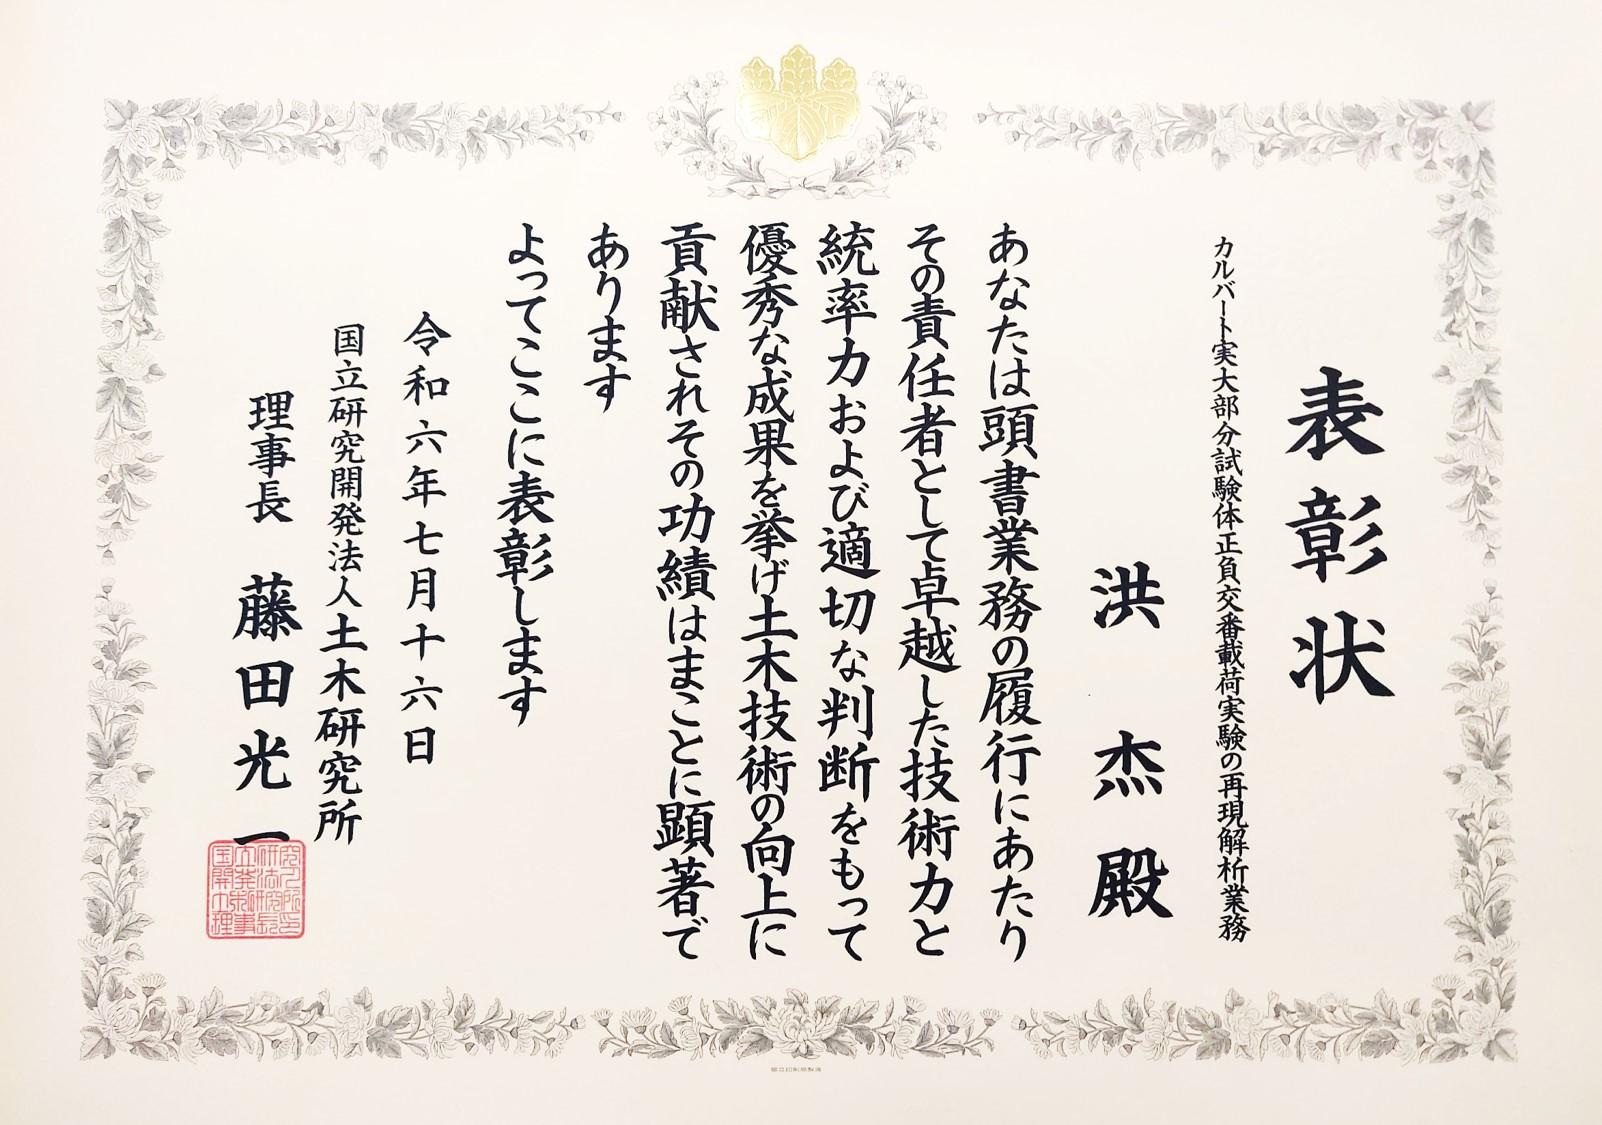 表彰状
カルバート実大部分試験体正負交番載荷実験の再現解析業務
洪 杰 殿
あなたは頭書業務の履行にあたり
その責任者として卓越した技術力と
統率力および適切な判断をもって
優秀な成果を挙げ土木技術の向上に
貢献されその功績はまことに顕著で
あります
よってここに表彰します
令和六年七月十六日
国立研究開発法人土木研究所
理事長 藤田光一